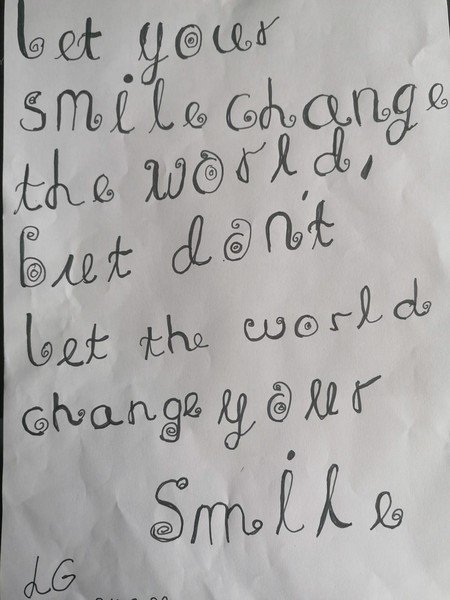 let your
smile change
the world,
but don't
let the world
change your
Smile
LG